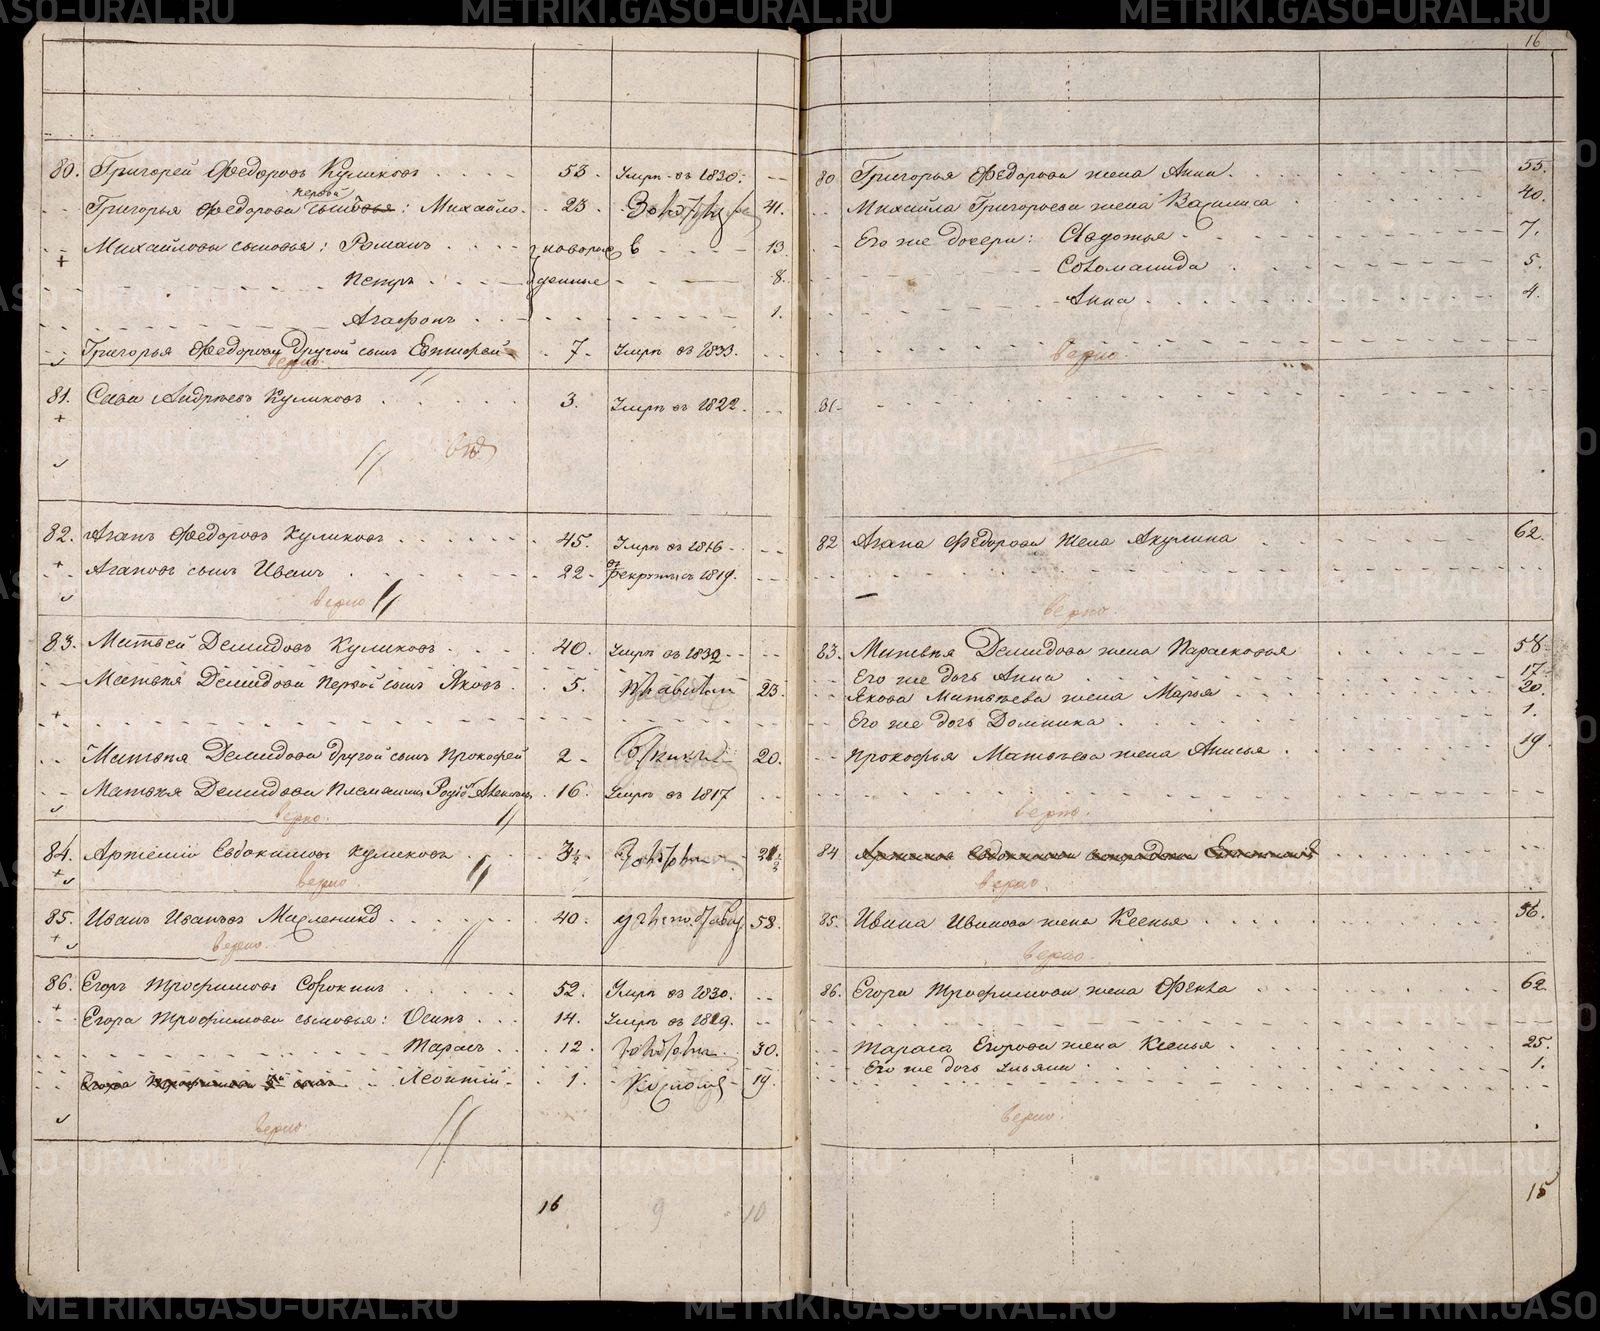 METRIKI.GASO-URAL.RU
16
80. Григорей Федоровъ Куликовъ 53. Умръ въ 1830.
первой
Григорья Федорова сыновья: Михайло 23. 41.
Михайловы сыновья: Романъ новорож в 13.
Петръ денные 8.
Агафонъ 1.
Григорья Федорова другой сынъ Евтифей 7. Умръ въ 1833.
верно.
81. Сава Андреевъ Куликовъ 3. Умръ въ 1822.
82. Агапъ Федоровъ Куликовъ 45. Умръ въ 1816
Агаповъ сынъ Иванъ 22. въ рекрутысъ 1819.
верно
83. Матвей Демидовъ Куликовъ 40. Умръ въ 1832
Матвѣя Демидова первой сынъ Яковъ 5. 23.
Матвѣя Демидова другой сынъ Прокофей 2 20.
Матвѣя Демидова племянникъ 16. Умръ въ 1817
верно.
84. Артемій Евдокимовъ Куликовъ 3½. 21½
верно.
85. Иванъ Ивановъ 40. 58.
верно.
86. Егоръ Трофимовъ Сорокинъ 52. Умръ въ 1830.
Егора Трофимова сыновья: Осипъ 14. Умръ въ 1819.
Тарасъ 12. 30.
Леонтій 1. 19.
верно.
16 9 10
80 Григорья Федорова жена Анна 55.
Михайла Григорьева жена Василиса 40.
Его же дочери: Авдотья 7.
Соломанида 5.
Анна 4.
верно.
81.
82. Агапа Федорова жена Акулина 62.
верно.
83. Матвѣя Демидова жена Парасковья 58
Его же дочь Анна 17
Якова Матвѣева жена Марья 20.
Его же дочь Домника 1.
Прокофья Матвѣева жена Анисья 19.
верно.
84
верно.
85. Ивана Иванова жена Ксенья 56.
верно.
86. Егора Трофимова жена Фекла 62.
Тараса Егорова жена Ксенья 25.
Его же дочь Ульяна 1.
верно.
15